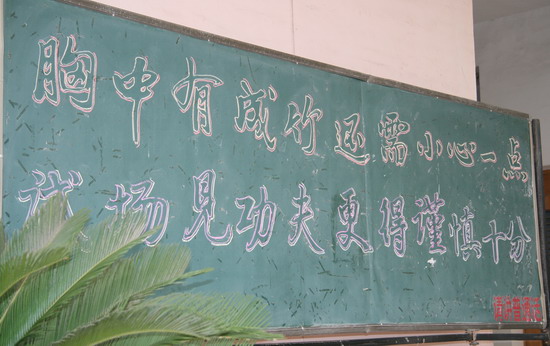 胸中有成竹还需小心一点
试场见功夫更得谨慎十分